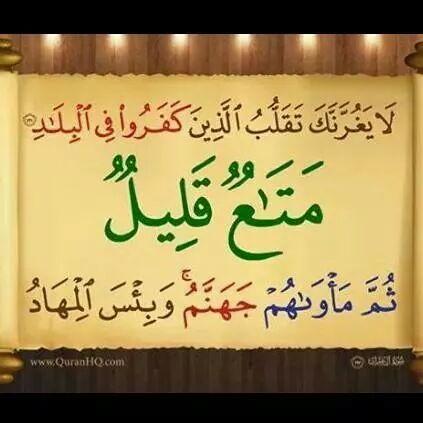 لَا يَغُرَّنَّكَ تَقَلُّبُ الَّذِينَ كَفَرُوا۟ فِي الْبِلَـٰدِ
مَتَـٰعٌ قَلِيلٌ
ثُمَّ مَأْوَىٰهُمْ جَهَنَّمُ ۚ وَبِئْسَ الْمِهَادُ
www.QuranHQ.com